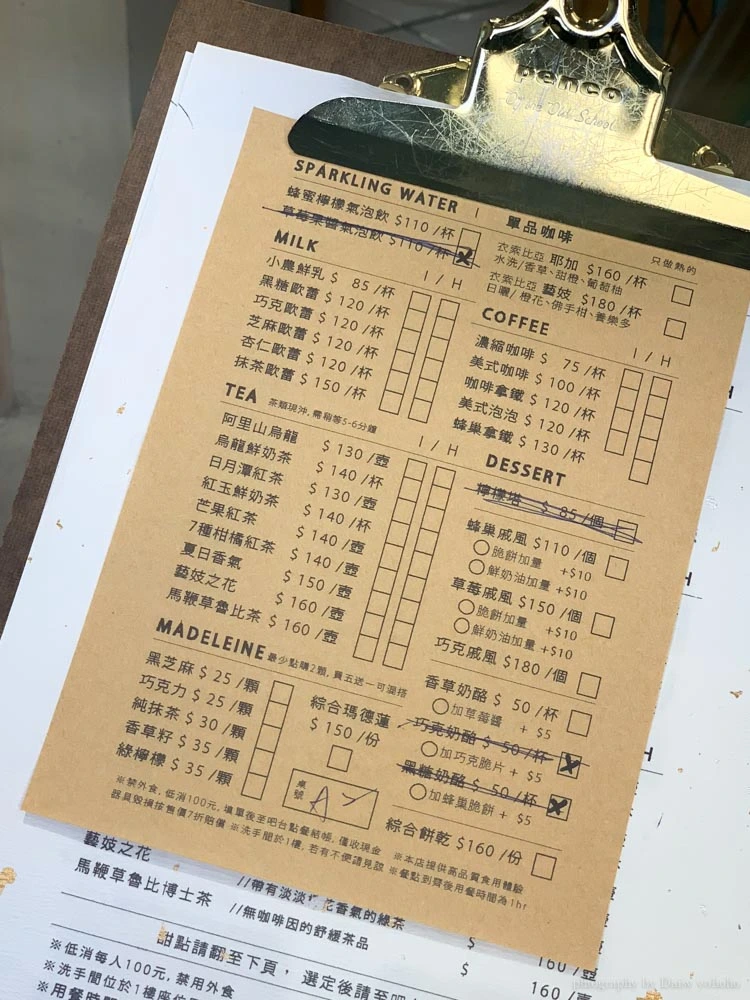 penco
SPARKLING WATER
蜂蜜檸檬氣泡飲 $110 /杯
草莓果醬氣泡飲 $110 /杯
MILK I / H
小農鮮乳 $ 85 /杯
黑糖歐蕾 $ 120 /杯
巧克歐蕾 $ 120 /杯
芝麻歐蕾 $ 120 /杯
杏仁歐蕾 $ 120 /杯
抹茶歐蕾 $ 150 /杯
TEA 茶類現沖,需稍等5-6分鐘 I / H
阿里山烏龍 $ 130 /壺
烏龍鮮奶茶 $ 140 /杯
日月潭紅茶 $ 130 /壺
紅玉鮮奶茶 $ 140 /杯
芒果紅茶 $ 140 /壺
7種柑橘紅茶 $ 140 /壺
夏日香氣 $ 150 /壺
藝妓之花 $ 160 /壺
馬鞭草魯比茶 $ 160 /壺
MADELEINE 最少點購2顆,買五送一可混搭
黑芝麻 $ 25 /顆
巧克力 $ 25 /顆
純抹茶 $ 30 /顆
香草籽 $ 35 /顆
綠檸檬 $ 35 /顆
綜合瑪德蓮
$ 150 /份
桌號
單品咖啡 只做熱的
衣索比亞 耶加 $160 /杯
水洗/香草、甜橙、葡萄柚
衣索比亞 藝妓 $180 /杯
日曬/橙花、佛手柑、養樂多
COFFEE I / H
濃縮咖啡 $ 75 /杯
美式咖啡 $ 100 /杯
咖啡拿鐵 $ 120 /杯
美式泡泡 $ 120 /杯
蜂巢拿鐵 $ 130 /杯
DESSERT
檸檬塔 $ 85 /個
蜂巢戚風 $110 /個
脆餅加量 +$10
鮮奶油加量 +$10
草莓戚風 $150 /個
脆餅加量 +$10
鮮奶油加量 +$10
巧克戚風 $180 /個
香草奶酪 $ 50 /杯
加草莓醬 + $5
巧克奶酪 $ 50 /杯
加巧克脆片 + $5
黑糖奶酪 $ 50 /杯
加蜂巢脆餅 + $5
綜合餅乾 $160 /份
※禁外食,低消100元,填單後至吧台點餐結帳,僅收現金 ※本店提供高品質食用體驗
器具毀損按售價7折賠償 ※洗手間於1樓,若有不便請見諒 ※餐點到齊後用餐時間為1hr
藝妓之花 //帶有淡淡 花香氣的綠茶
馬鞭草魯比博士茶 //無咖啡因的舒緩茶品
$ 160 /壺
$ 160 /壺
甜點請翻至下頁, 選定後請至吧
※低消每人100元,禁用外食
※洗手間位於1樓座位
※用餐時間
photography by Dianv vohoho